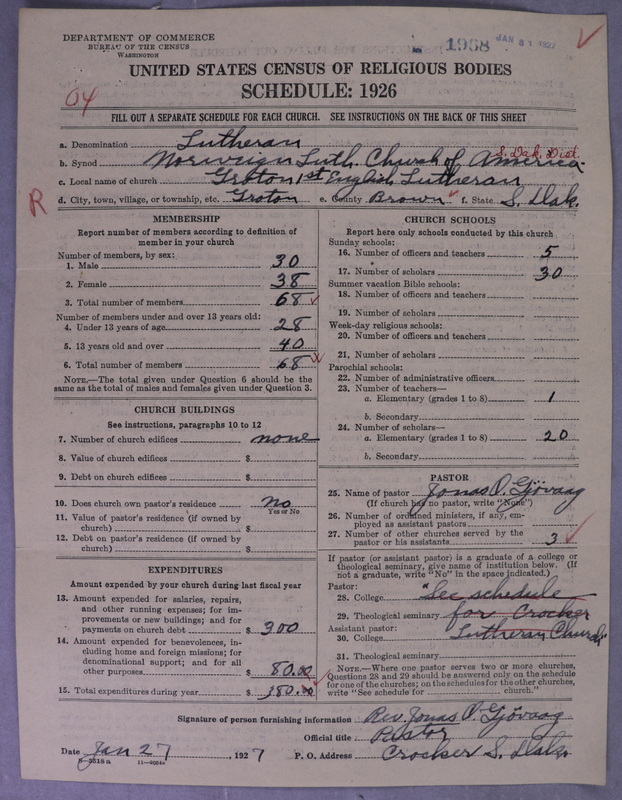 DEPARTMENT OF COMMERCE
BUREAU OF THE CENSUS
WASHINGTON
1968
JAN 31 1927
UNITED STATES CENSUS OF RELIGIOUS BODIES
SCHEDULE: 1926
04
FILL OUT A SEPARATE SCHEDULE FOR EACH CHURCH. SEE INSTRUCTIONS ON THE BACK OF THIS SHEET
a. Denomination Lutheran
S. Dak. Dist.
b. Synod Norweign Luth. Church of America
c. Local name of church Groton 1st English Lutheran
R
d. City, town, village, or township, etc. Groton e. County Brown f. State S. Dak.
MEMBERSHIP
Report number of members according to definition of member in your church
Number of members, by sex:
1. Male 30
2. Female 38
3. Total number of members 68
Number of members under and over 13 years old:
4. Under 13 years of age 28
5. 13 years old and over 40
6. Total number of members 68
NOTE.—The total given under Question 6 should be
same as the total of males and females given under Question 3.
CHURCH BUILDINGS
See instructions, paragraphs 10 to 12
7. Number of church edifices none
8. Value of church edifices $
9. Debt on church edifices $
10. Does church own pastor's residence No
Yes or No
11. Value of pastor's residence (if owned by
church) $
12. Debt on pastor's residence (if owned by
church) $
EXPENDITURES
Amount expended by your church during last fiscal year
13. Amount expended for salaries, repairs,
and other running expenses; for im-
provements or new buildings; and for
payments on church debt $ 300
14. Amount expended for benevolences, in-
cluding home and foreign missions; for
denominational support; and for all
other purposes $ 80.00
15. Total expenditures during year $ 380.00
CHURCH SCHOOLS
Report here only schools conducted by this church
Sunday schools:
16. Number of officers and teachers 5
17. Number of scholars 30
Summer vacation Bible schools:
18. Number of officers and teachers
19. Number of scholars
Week-day religious schools:
20. Number of officers and teachers
21. Number of scholars
Parochial schools:
22. Number of administrative officers
23. Number of teachers—
a. Elementary (grades 1 to 8) 1
b. Secondary
24. Number of scholars—
a. Elementary (grades 1 to 8) 20
b. Secondary
PASTOR
25. Name of pastor Jonas O. Gjövaag
(If church has no pastor, write "None")
26. Number of ordained ministers, if any, em-
ployed as assistant pastors
27. Number of other churches served by the
pastor or his assistants 3
If pastor (or assistant pastor) is a graduate of a college or
theological seminary, give name of institution below. (If
not a graduate, write "No" in the space indicated.)
Pastor:
28. College "See schedule
29. Theological seminary for Crocker
Assistant pastor:
30. College Lutheran Church"
31. Theological seminary
NOTE.—Where one pastor serves two or more churches,
Questions 28 and 29 should be answered only on the schedule
for one of the churches; on the schedules for the other churches,
write "See schedule for church."
Signature of person furnishing information Rev. Jonas O. Gjövaag
Official title Pastor
Date Jan 27, 1927 P. O. Address Crocker S. Dak.